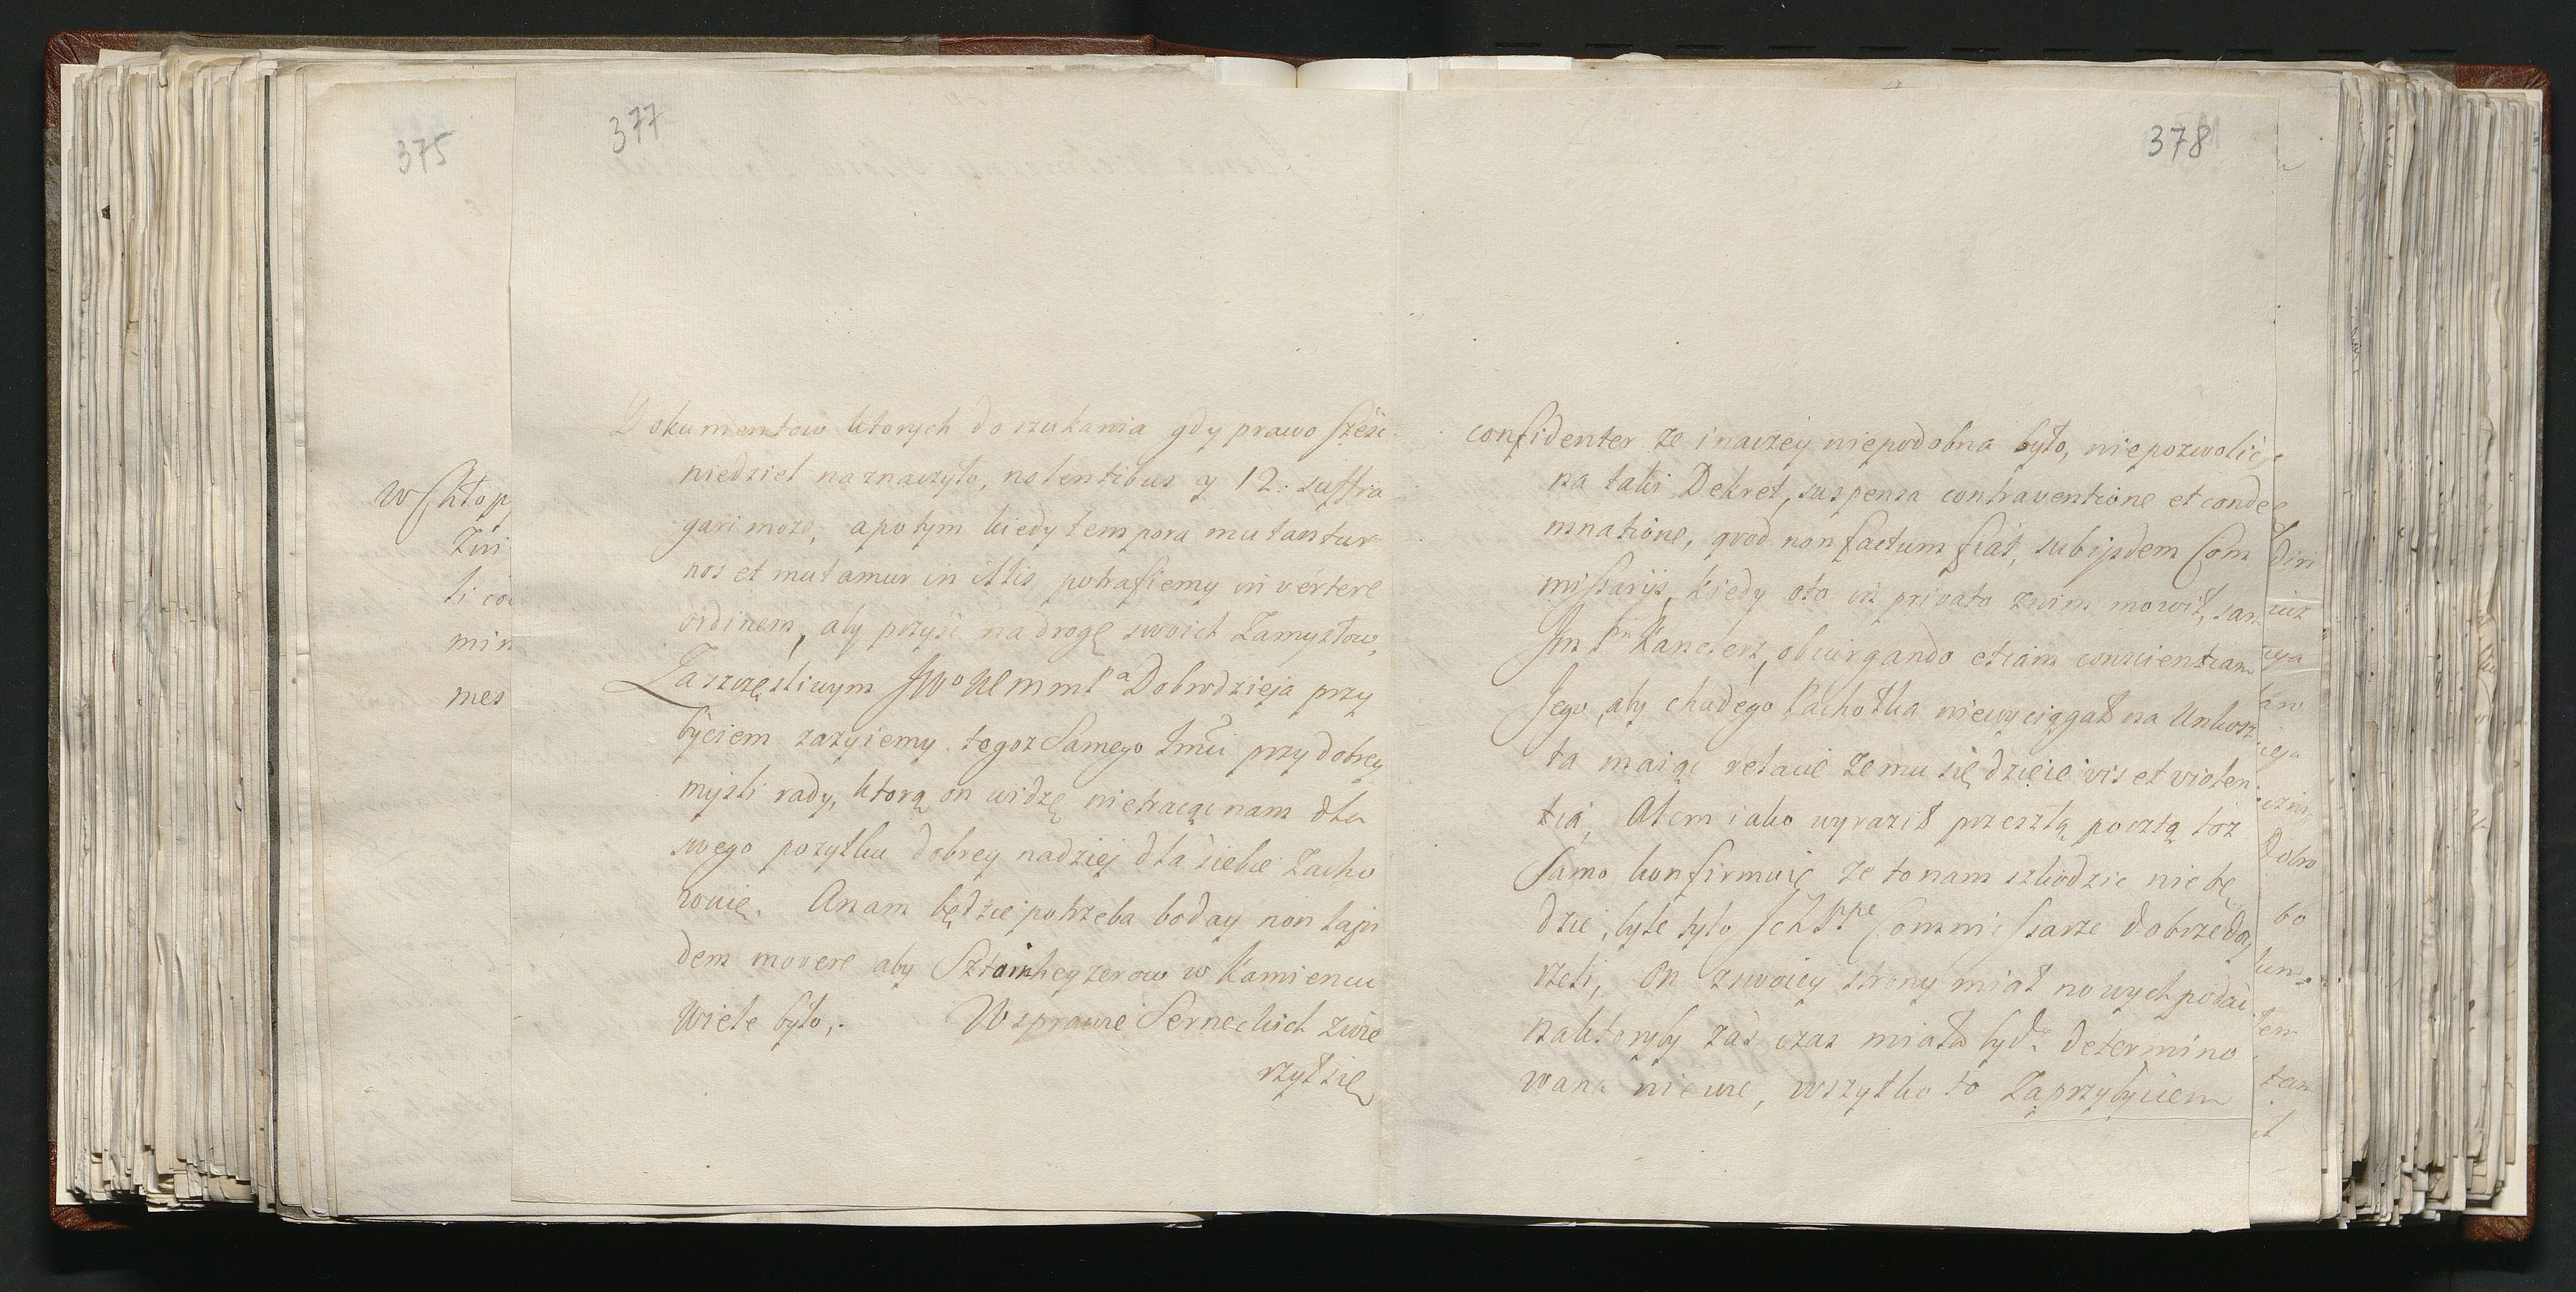 375
W Chłop
Zwi
li co
min
mes
377
Dokumentow ktorych do szukania gdy prawo sześc
niedziel naznaczyło, nolentibus y 12. suffra
gari może, apotym kiedy tempora mutantur
nos et mutamur in illis potrafiemy invertere
ordinem, aby przyść na drogę swoich Zamysłow,
Zaszczęśliwym JWo WMmmPa Dobrodzieja przy
byciem zażyiemy tegoz Samego Jmci przy dobrey
myśli rady, ktorą on widzę nietracąc nam dla
swego pozytku dobrey nadziej dla siebie Zacho
wuie. Anam będzie potrzeba boday non lapi
dem movere aby Sztainheyzerow w Kamiencu
Wiele było,. W sprawie Serneckich zwie
rzył się
378
confidenter ze inaczey niepodobna było, niepozwolić
na taki Dekret, suspensa contraventione et conde
mnatione, quod non factum fiat, sub ijsdem Com
missarijs, kiedy oto in privato znim mowił, sam
Jm Pn Kanclerz, obiurgando etiam conscientiam
Jego, aby chudego Pachołka niewyciągał na Unkosz
ta maiąc relacie ze mu się dzieie vis et violen
tia, Atem iako wyraził przeszłą pocztą toż
Samo konfirmuię ze to nam szkodzic nie bę
dzie, byle tylo Commissarze dobrze
rzeli, On zswoiey strony miał nowych podać
naktoryby zaś czas miała bydz determino
wana niewie, wszytko to Zaprzybyciem
Dobro
bo